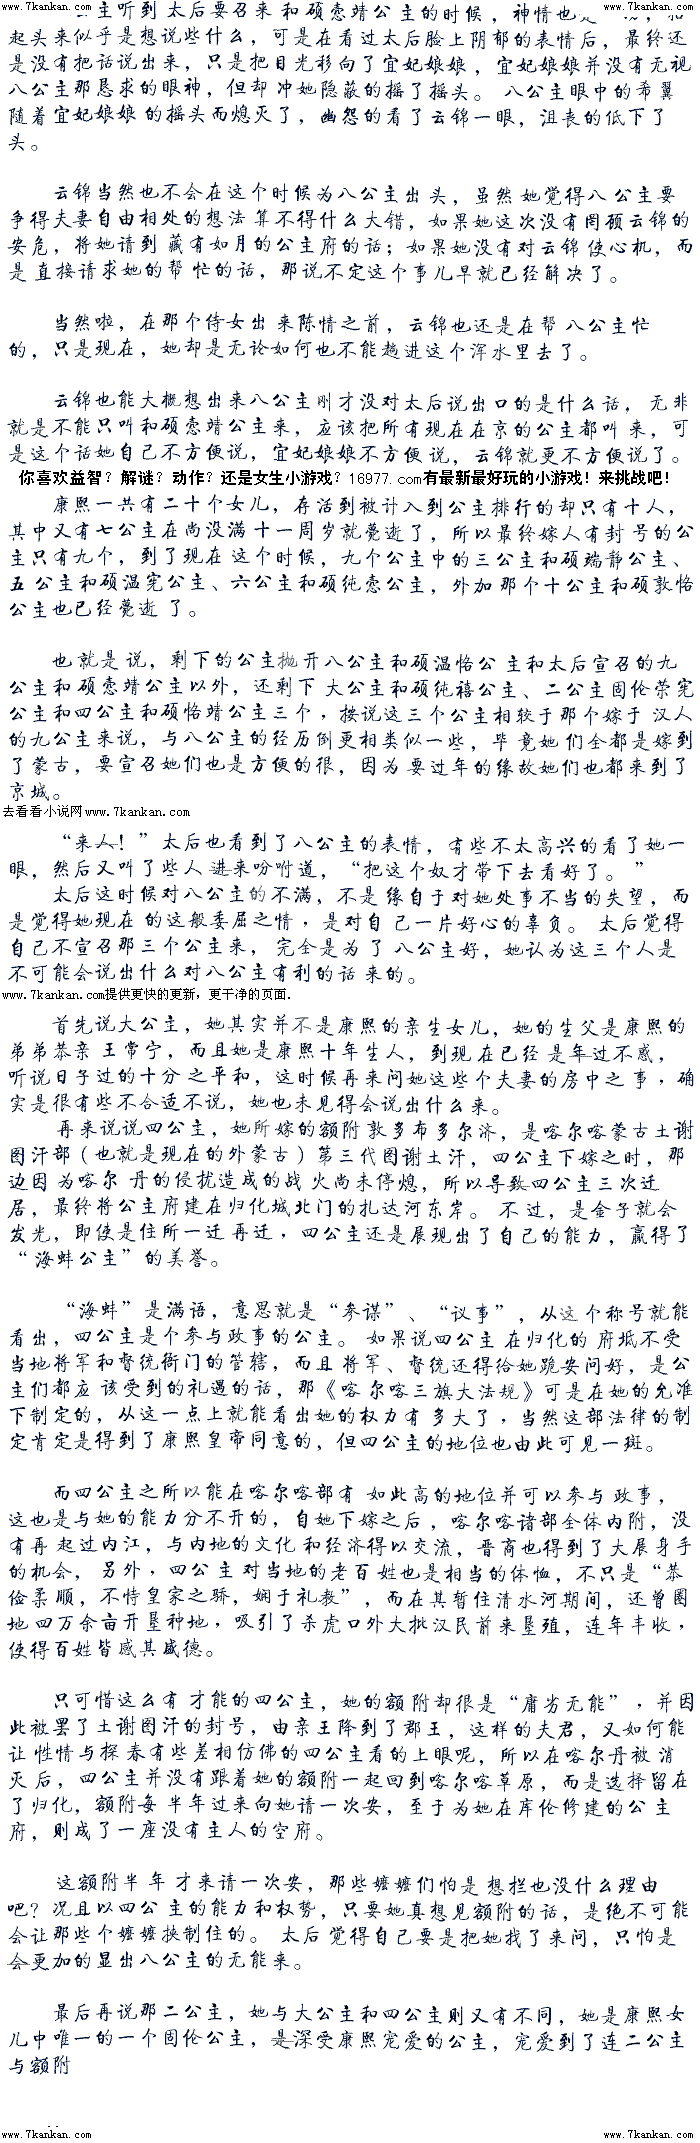 www.7kankan.com www.7kankan.com
主听到 太后要召来 和 硕悫靖公 主的时候，神情也是
起头来似乎是想说些什么，可是在看过太后脸上阴郁的表情后，最终还
是没有把话说出来，只是把目光移向了宜妃娘娘，宜妃娘娘并没有无视
八公主那恳求的眼神，但却 冲她隐蔽的摇了摇头。 八公主眼中的希翼
随着宜妃娘娘 的摇头而熄灭了，幽怨的看了云锦一眼，沮丧的低下了
头。
云锦当然也不会在这个时候为八公主出 头，虽然 她觉得八 公主要
争得夫妻自由相处的想法 算不得什么大错，如果她这次没有罔顾云锦的
安危，将她请到 藏有如月的公主府的话；如果她没有对云锦 使心机，而
是 直接请求她的帮 忙的话，那说不定这个事儿早就已经解决了。
当然啦，在那个侍女出 来陈情之前，云锦也还是在帮 八公主忙
的，只是现在，她却是无论如何也不能趟进这个浑水里去了。
云锦也能大概想出来八公主刚才没对太后说出口的是什么话，无非
就是不能只叫和硕悫靖公主来，应该把所有现在在京的公主都叫 来，可
是这个话她自己不方便说，宜妃娘娘不方便说，云锦就更不方便说了。
你喜欢益智？解谜？动作？还是女生小游戏？16977.com有最新最好玩的小游戏！来挑战吧！
康熙一共有二十个女儿，存活到被计入到公主排行的却只有十人，
其中又有七公主在尚没满 十一周岁就薨逝了，所以最终嫁人有封号的公
主只有九个，到了现在 这个时候，九个公主中的三公主和硕端静公主、
五 公主和硕温宪公主、六公主和硕纯悫公主，外加 那个十公主和硕敦恪
公主也已经薨逝 了。
也 就是 说，剩下的公主抛 开八公主和硕温恪公 主和太后宣召的九
公主和 硕悫靖公主以外，还剩下 大公主和硕纯禧公主、二公主固伦荣宪
公主和四公主和硕恪靖公主三个，按说这三个公主相较于那个嫁于 汉人
的九公主来说，与八公主的经历倒更相类似一些，毕 竟她 们全都是嫁到
了蒙古，要宣召她们也是方便的很，因为 要过年的缘故她们也都来到了
京城。
去看看小说网www.7kankan.com
“来人！”太后也看到了八公主的表情，有些不太高兴的看了她一
眼，然后又叫了些人 进来吩咐道，“把这个奴才带下去看好了。”
太后这时候对八公主的不满，不是 缘自于对她处事不当的失望，而
是觉得她现在 的这般委屈之情，是对自 己一片好心的辜负。 太后觉得
自己不宣召那三个公主来，完全是为 了 八公主好，她认为这三个人是
不可能会说出什么对八公主有利的话 来的。
www.7kankan.com提供更快的更新，更干净的页面.
首先说大公主，她其实并不是康熙的亲生女儿，她的生父是康熙的
弟弟恭亲 王常宁，而且她是康熙十年生人，到现 在已经 是年过不惑，
听说日子过的十分 之平和，这时候再来问她这些个夫妻的房中之 事，确
实是很有些不合适不说，她也未见得会说出什么来。
再来说说四公主，她所嫁的额附 敦多布多尔济，是喀尔喀蒙古土谢
图汗部（也就是现在的外蒙古）第三代图谢土汗，四公主下嫁之时，那
边因 为喀尔 丹的侵扰造成的战 火尚未停熄，所以导致四公主三次迁
居，最终将公主府建在归化城北门的扎达河东岸。 不过，是金子就会
发光，即使是住所一迁 再迁，四公主还是展现出了自己的能力，赢得了
“海蚌公主”的美誉。
“海蚌”是满语，意思就是“参谋”、“议事”，从这 个称号就能
看出，四公主是个参与政事的公主。 如果说四公主 在归化的 府坻不受
当地将军和督统衙门的管辖，而且 将军、督统还得给她跪安问好，是公
主们都应 该受到的礼遇的话，那《喀 尔喀三旗大法规》可是在她的允准
下制定的，从这一点上就能看出她的权力有 多大了，当然这部法律的制
定肯定是得到了康熙皇帝同意的，但四公主的地位也由此可见一斑。
而四公主之所以能在喀尔喀部有 如此高的地位并可以参与 政事，
这也是与她的能力分不开的，自她下嫁之后，喀尔喀诸部全体内附，没
有再 起过内江，与内地的文化 和经济得以交流，晋商也得到了大展身手
的机会，另外，四公 主 对当地的老百 姓也是相当的体恤，不只是“恭
俭柔 顺，不恃皇家之骄，娴于礼教”，而在其暂住清水河期间，还曾圈
地 四万余亩开垦种地，吸引了杀虎口外大批汉民前来垦殖，连年丰收，
使得百姓皆感其盛德。
只可惜这么有 才能的四公主，她的额 附却很是“庸劣无能”，并因
此被罢了土谢图汗的封号，由亲王降到了郡王，这样的夫君，又如何能
让 性情与探 春有些差相仿佛的四公主看的上眼呢，所以在喀尔丹被 消
灭后，四公主并没有跟着她的额附一起回到喀尔喀草原，而是选择留在
了归化，额附每 半年过来向她请一次安，至于为她在库伦修建的公 主
府，则成了一座没有主人的空府。
这额附半 年 才来请一次安，那些嬷嬷们怕是 想拦也没什么理由
吧？况且以四公 主的能力和权势，只要她真想见额附的话，是绝不可能
会让那些个嬷嬷挟制住的。 太后 觉得自己要是把她找了来问，只怕是
会更加的显出八公主的无能来。
最后再说那二公主，她与大公主和四公主则又有不同，她是康熙女
儿中唯一的一个固伦公主，是深受康熙宠爱的公主，宠爱到了连二公主
与额附
www.7kankan.com www.7kankan.com